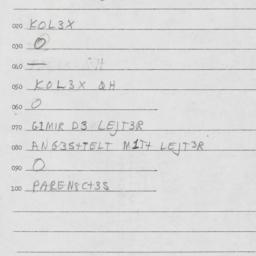 020 KOL3X
030 O
040 —
050 KOL3X QH
060 O
070 GIMIR D3 LEJT3R
080 ANG3S+TELT M1T+ LEJT3R
090 O
100 PARENSC+3S